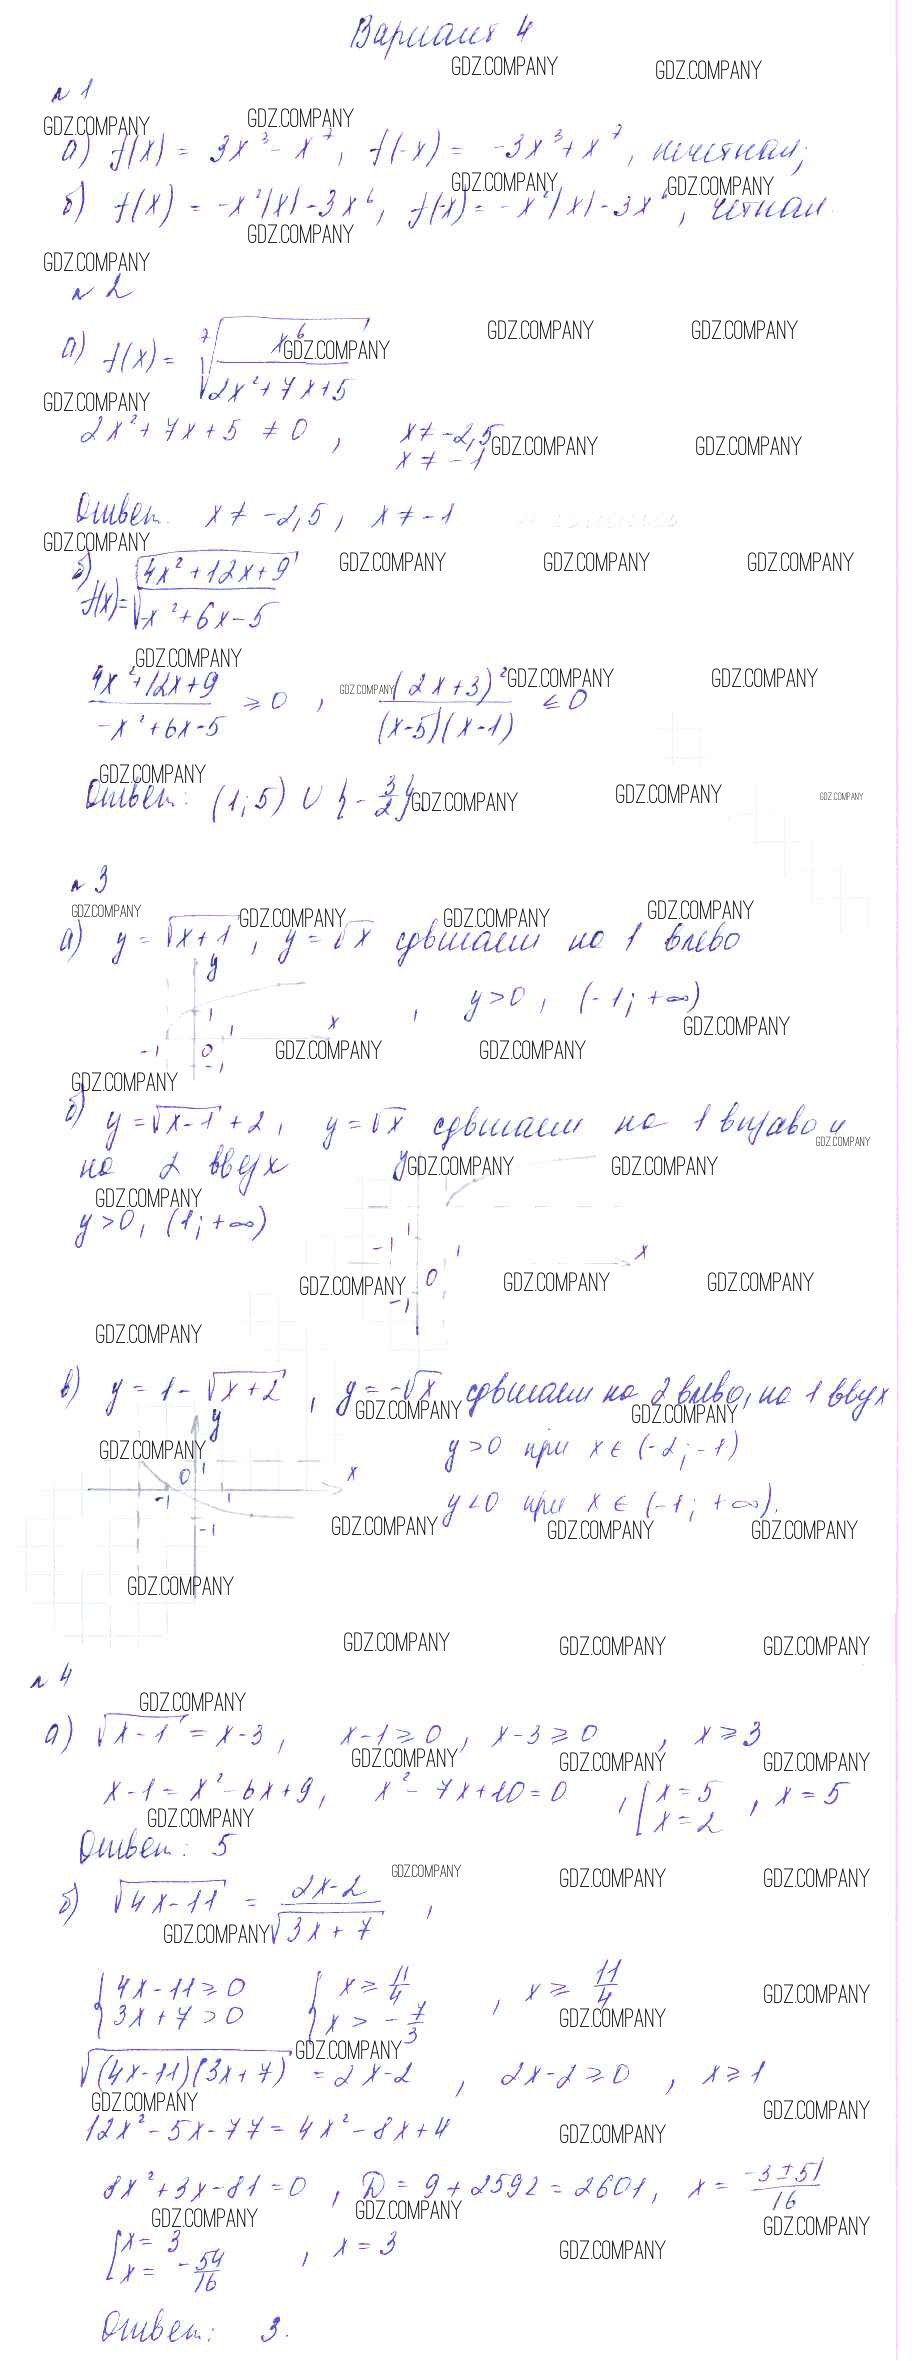 Вариант 4
GDZ.COMPANY GDZ.COMPANY
№ 1
GDZ.COMPANY GDZ.COMPANY
а) f(x) = 3x³ - x⁷, f(-x) = -3x³ + x⁷, нечетная;
GDZ.COMPANY GDZ.COMPANY
б) f(x) = -x²|x| - 3x⁶, f(-x) = -x²|x| - 3x⁶, четная.
GDZ.COMPANY
GDZ.COMPANY
№ 2
GDZ.COMPANY GDZ.COMPANY
а) f(x) = ⁷√(x⁶/(2x² + 7x + 5))
GDZ.COMPANY
GDZ.COMPANY
2x² + 7x + 5 ≠ 0, x ≠ -2,5
x ≠ -1
GDZ.COMPANY GDZ.COMPANY
Ответ. x ≠ -2,5, x ≠ -1
GDZ.COMPANY
GDZ.COMPANY GDZ.COMPANY GDZ.COMPANY
б) f(x) = √((4x² + 12x + 9)/(-x² + 6x - 5))
GDZ.COMPANY
(4x² + 12x + 9)/(-x² + 6x - 5) ≥ 0, (2x + 3)²/((x - 5)(x - 1)) ≤ 0
GDZ.COMPANY GDZ.COMPANY GDZ.COMPANY
GDZ.COMPANY
Ответ: (1; 5) ∪ {-3/2}.
GDZ.COMPANY GDZ.COMPANY GDZ.COMPANY
№ 3
GDZ.COMPANY GDZ.COMPANY GDZ.COMPANY GDZ.COMPANY
а) y = √(x + 1), y = √x сдвигаем на 1 влево
y
1 1 x
-1 0 -1
, y > 0, (-1; +∞)
GDZ.COMPANY
GDZ.COMPANY GDZ.COMPANY
GDZ.COMPANY
б) y = √(x - 1) + 2, y = √x сдвигаем на 1 вправо и
GDZ.COMPANY
на 2 вверх
y
GDZ.COMPANY GDZ.COMPANY
GDZ.COMPANY
y > 0, (1; +∞)
-1 1 1 x
0
-1
GDZ.COMPANY GDZ.COMPANY GDZ.COMPANY
GDZ.COMPANY
в) y = 1 - √(x + 2), y = -√x сдвигаем на 2 влево, на 1 ввух
GDZ.COMPANY GDZ.COMPANY
y
GDZ.COMPANY
y > 0 при x ∈ (-2; -1)
0 1 x
-1 1
-1
y < 0 при x ∈ (-1; +∞).
GDZ.COMPANY GDZ.COMPANY GDZ.COMPANY
GDZ.COMPANY
GDZ.COMPANY GDZ.COMPANY GDZ.COMPANY
№ 4
GDZ.COMPANY
а) √(x - 1) = x - 3, x - 1 ≥ 0, x - 3 ≥ 0, x ≥ 3
GDZ.COMPANY GDZ.COMPANY GDZ.COMPANY
x - 1 = x² - 6x + 9, x² - 7x + 10 = 0, [x = 5
x = 2, x = 5
GDZ.COMPANY
Ответ: 5
GDZ.COMPANY GDZ.COMPANY GDZ.COMPANY
б) √(4x - 11) = (2x - 2)/√(3x + 7),
GDZ.COMPANY
{4x - 11 ≥ 0 {x ≥ 11/4, x ≥ 11/4
3x + 7 > 0 x > -7/3
GDZ.COMPANY
GDZ.COMPANY
GDZ.COMPANY
√((4x - 11)(3x + 7)) = 2x - 2, 2x - 2 ≥ 0, x ≥ 1
GDZ.COMPANY GDZ.COMPANY
12x² - 5x - 77 = 4x² - 8x + 4
GDZ.COMPANY
8x² + 3x - 81 = 0, D = 9 + 2592 = 2601, x = (-3 ± 51)/16
GDZ.COMPANY GDZ.COMPANY GDZ.COMPANY
[x = 3
x = -54/16, x = 3
GDZ.COMPANY
Ответ: 3.